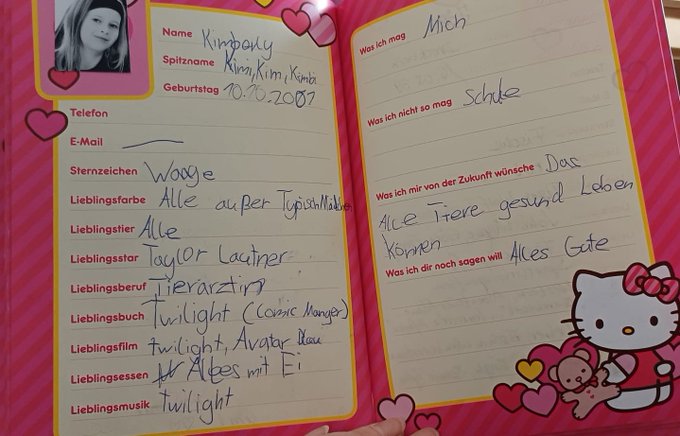 Name Kimberly
Spitzname Kimi, Kim, Kimbi
Geburtstag 10.10.2001
Telefon
E-Mail
Sternzeichen Waage
Lieblingsfarbe Alle außer Typisch Mädchen
Lieblingstier Alle
Lieblingsstar Taylor Lautner
Lieblingsberuf Tierärztin
Lieblingsbuch Twilight (Comic Manger)
Lieblingsfilm twilight, Avatar Blau
Lieblingsessen Alles mit Ei
Lieblingsmusik twilight
Was ich mag Mich
Was ich nicht so mag Schule
Was ich mir von der Zukunft wünsche Das
Alle Tiere gesund Leben
können
Was ich dir noch sagen will Alles Gute